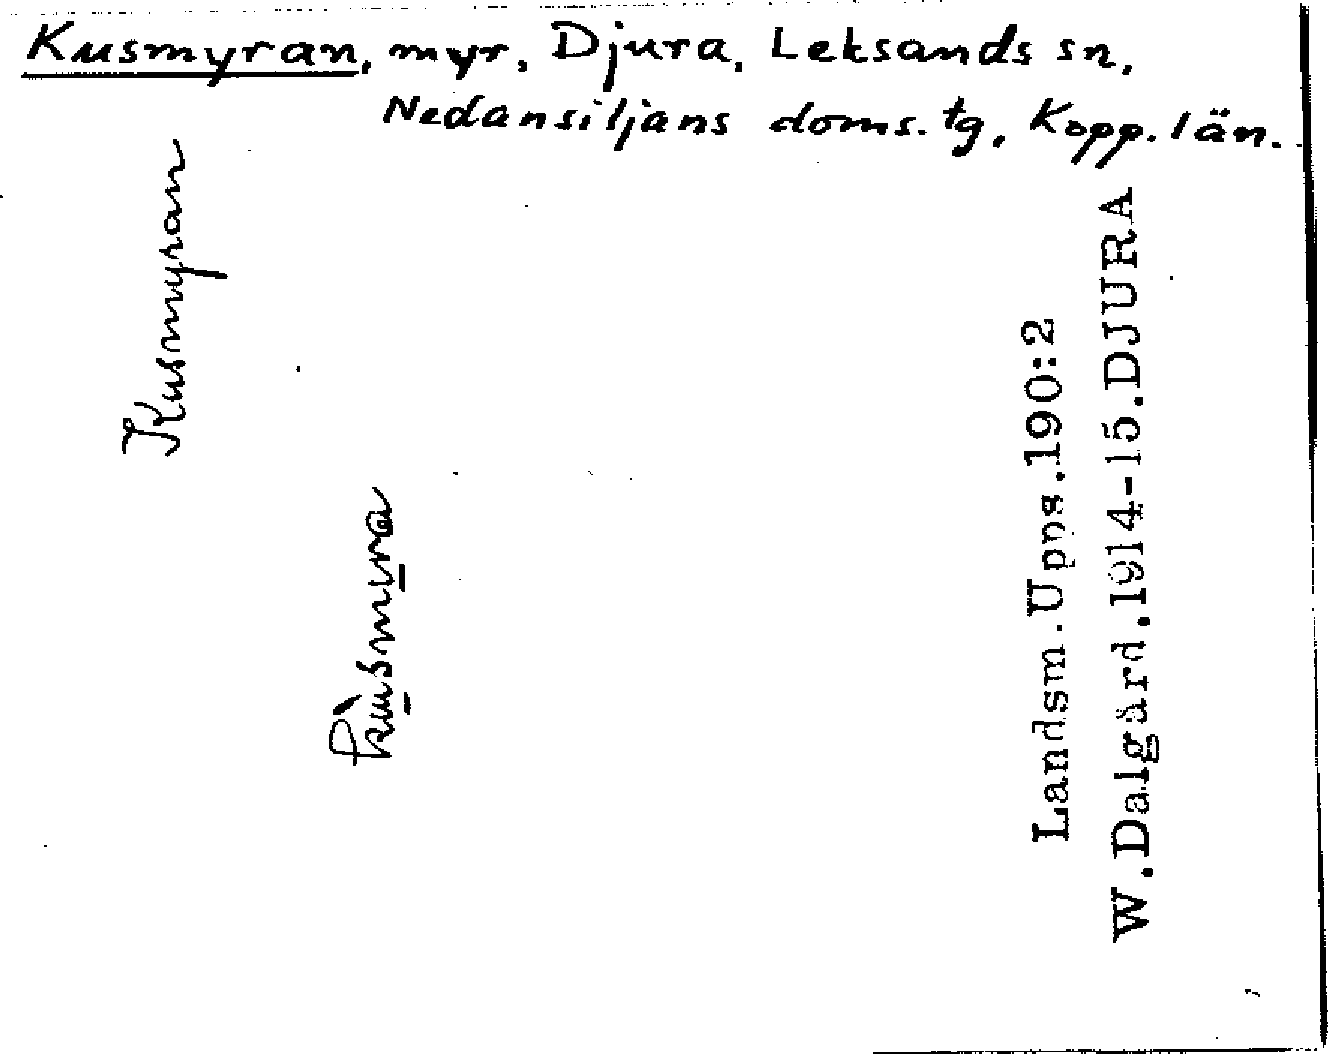 Kusmyran, myr, Djura, Leksands sn,
Nedansiljans doms. tg, Kopp. län.
Kusmyran
Landsm.Upps.190:2
W.Dalgård.1914-15.DJURA